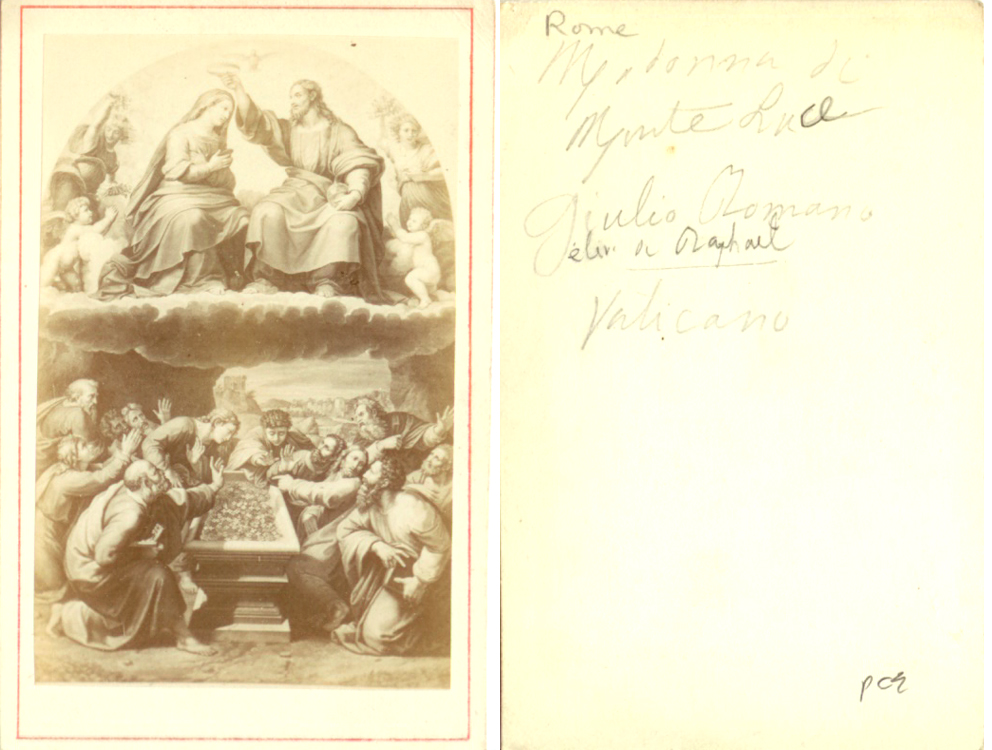 Rome
Madonna di
Monte Luce
Giulio Romano
élèv. de Raphaël
Vaticano